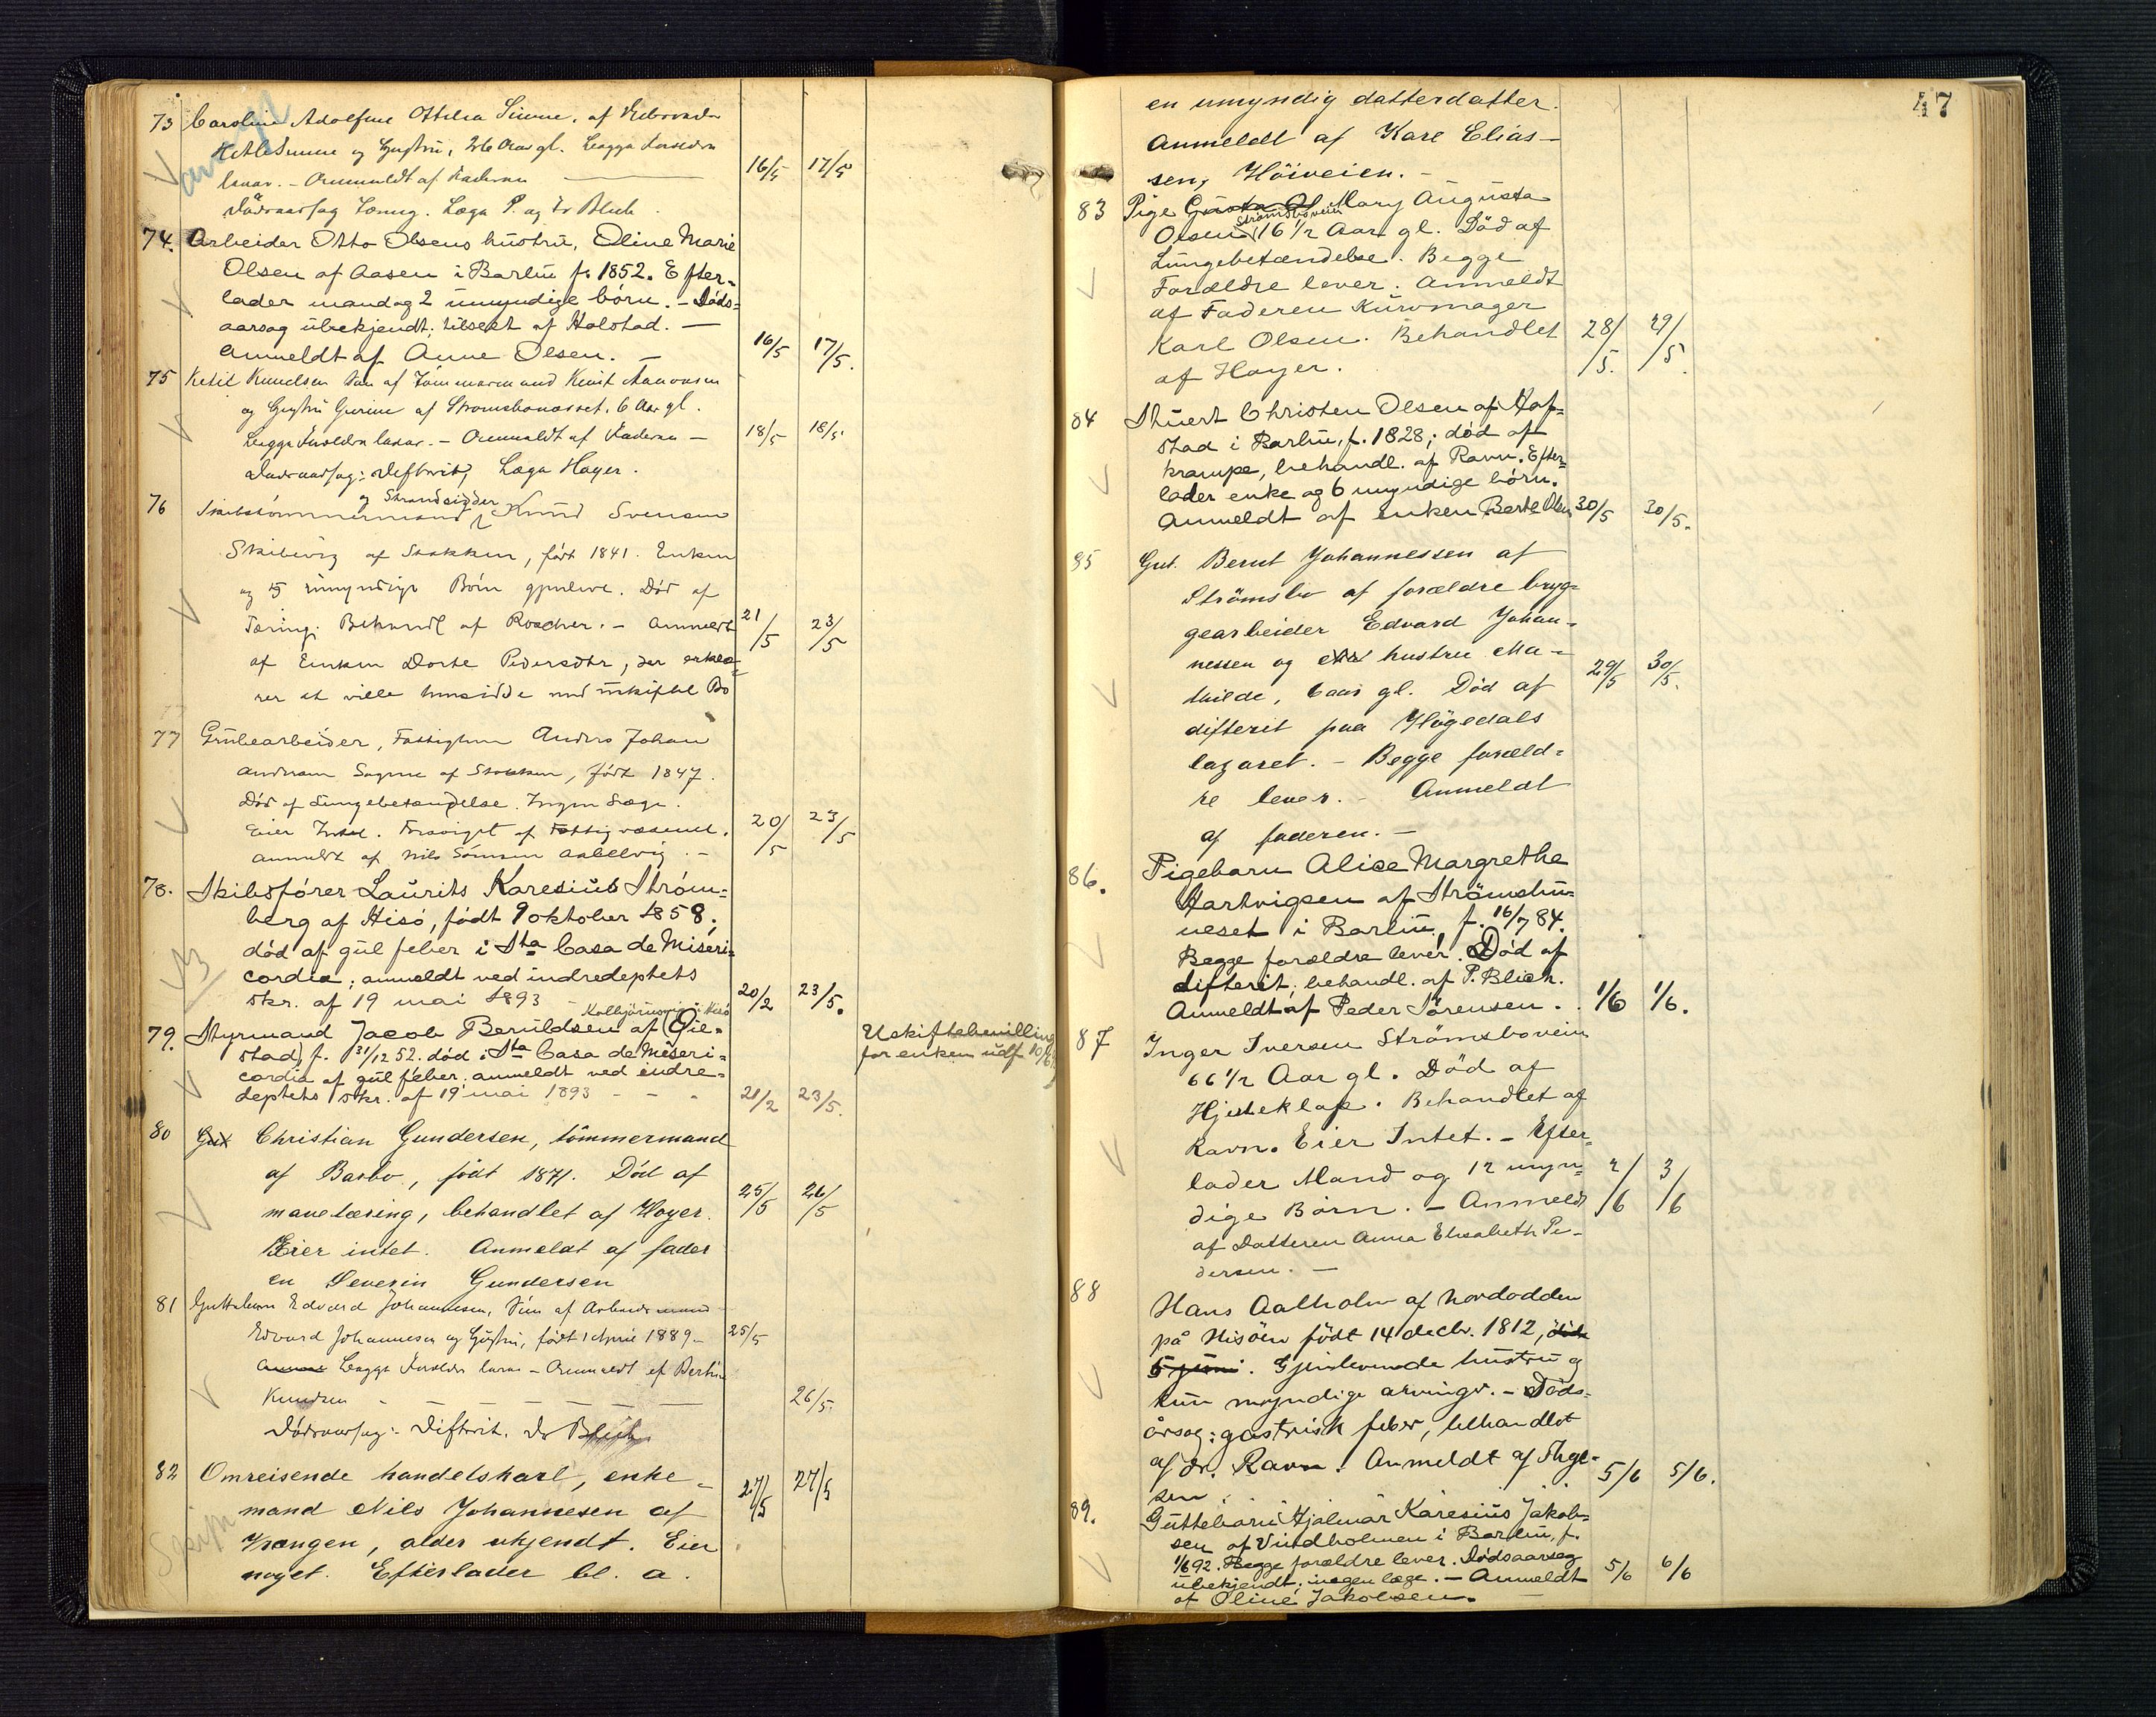 73 Caroline Adolfine Ottilia Sinne, af
og Hustru, 26 Aar gl. Begge Forældre
lever. - Anmeldt af Faderen
16/5 17/5
Dödsaarsag Tæring. Læge P. og Dr Blich.
74. Arbeider Otto Olsens hustru, Oline Marie
Olsen af Aasen i Barbu f. 1852. Efter-
lader mand og 2 umyndige börn. - Döds-
aarsag ubekjendt; tilseet af Holstad. -
Anmeldt af Anne Olsen. -
16/5 17/5.
75 Ketil Knudsen Søn af Tømmermand Knut Aanonsen
og Hustru Gurine af Strømsbonæsset. 6 Aar gl.
Begge Forældre lever. - Anmeldt af Faderen -
18/5 18/5.
Dødsaarsag: Difterit, Læge Høyer.
og Strandsidder
76 Skibstömmermand Knud Svensen
Skibevig af Stokken, födt 1841. Enken
og 5 umyndige Börn gjenleve. Död af
Tæring. Behandl af Roscher. - Anmeldt
21/5 23/5
af Enken Dorte Pedersdtr, der erklæ-
rer at ville hensidde med uskiftet Bo
77 Grubearbeider, Fattiglem Anders Johan
Andersen Sagene af Stokken, födt 1847.
Död af Lungebetændelse. Ingen Læge.
Eier Intet. Forsörget af Fattigvæsenet.
20/5 23/5
Anmeldt af Nils Sömsen Asbelvig. -
78. Skibsförer Laurits Karesius Ström-
berg af Hisö, födt 9 oktober 1858;
död af gul feber i Sta Casa de Miseri-
cordia; anmeldt ved indredeptets
skr. af 19 mai 1893 -
20/2 23/5.
Kolbjörnsvig i Hisö
79. Styrmand Jacob Beruldsen af (Öie-
stad), f. 31/12 52. död i Sta Casa de Miseri-
cordia af gul feber. anmeldt ved indre-
deptets skr. af 19 mai 1893 - - -
21/2 23/5.
Uskiftebevilling
for enken udf 10/6
80 Gut Christian Gundersen, tömmermand
af Barbo, födt 1871. Död af
mavetæring, behandlet af Høyer.
25/5 26/5
Eier intet. Anmeldt af fader
en Severin Gundersen
81 Guttebarn Edvard Johannesen, Søn af Arbeidsmand
Edvard Johannesen og Hustru, født 1 April 1889 -
25/5
Begge Forældre lever - Anmeldt af Bertin
Knudsen - - - - - -
26/5.
Dödsaarsag: Difterit. Dr Blich
82 Omreisende handelskarl, enke-
mand Nils Johannesen af
27/5 27/5
Vrængen, alder ukjendt. Eier
noget. Efterlader bl. a.
47
en umyndig datterdatter.
Anmeldt af Karl Elias-
sen, Höiveien. -
83 Pige Gusta Ol Mary Augusta
Strömsboveien
Olsen 16 1/2 Aar gl. Död af
Lungebetændelse. Begge
Forældre lever. Anmeldt
af Faderen Kurvmager
Karl Olsen. Behandlet
28/5. 29/5.
af Høyer.
84 Stuert Christen Olsen af Hap-
stad i Barbu, f. 1828; död af
krampe, behandl. af Ravn. Efter-
lader enke og 6 umyndige börn.
Anmeldt af enken Berte Olsen
30/5 30/5.
85 Gut. Bernt Johannessen af
Strömsbo af forældre bryg-
gearbeider Edvard Johan-
nessen og hustru Ma-
29/5 30/5.
thilde, 6 aar gl. Död af
difterit paa Högedals
lazaret. - Begge foræld-
re lever. - Anmeldt
af faderen. -
86. Pigebarn Alice Margrethe
Hartvigsen af Strömsbu-
neset i Barbu, f. 16/7 84.
Begge forældre lever. Död af
difterit; behandl. af P. Blich.
Anmeldt af Peder Sörensen. .
1/6 1/6.
87 Inger Iversen Strömsboveien
66 1/2 Aar gl. Död af
Hjerteklap. Behandlet af
Ravn. Eier Intet. - Efter-
lader Mand og 12 myn-
2/6 3/6
dige Börn. - Anmeldt
af Datteren Anna Elisabeth Pe-
dersen. -
88 Hans Aalholm af Nordodden
på Hisöen födt 14 decbr. 1812, död
5 juni. Gjenlevende hustru og
kun myndige arvinger. - Döds-
årsag: gastrisk feber, behandlet
af dr. Ravn. Anmeldt af Thyge-
5/6 5/6.
sen.
89. Guttebarn Hjalmar Karesius Jakob-
sen af Vindholmen i Barbu, f.
1/6 92. Begge forældre lever. Dödsaarsag
ubekjendt; ingen læge. - Anmeldt
5/6 6/6
af Oline Jakobsen.